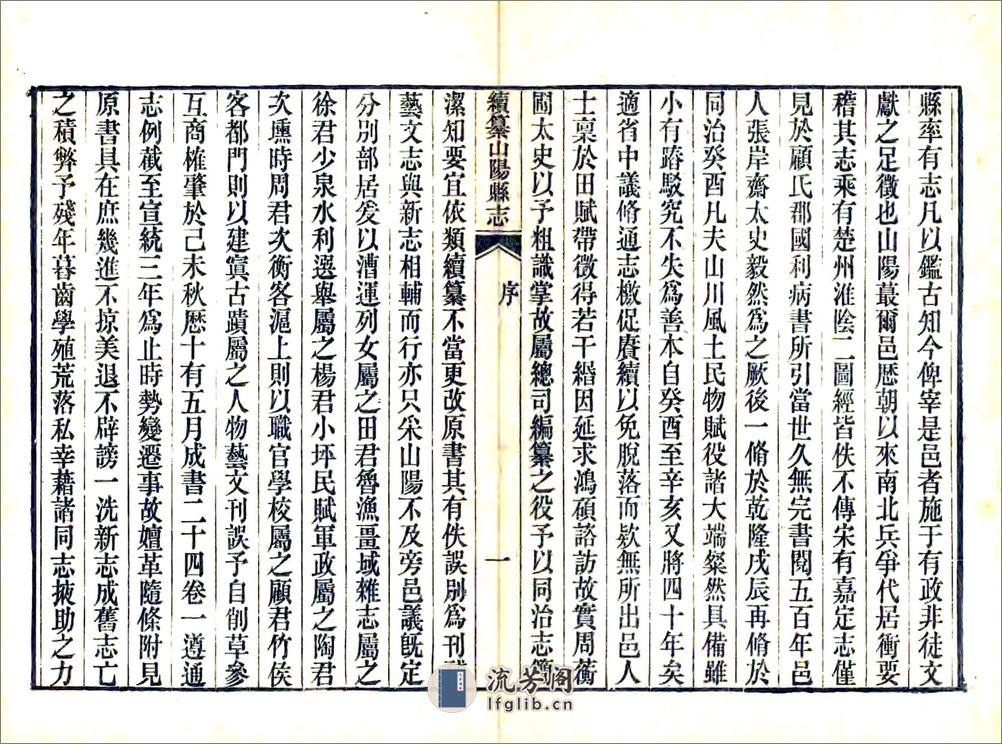 縣率有志凡以鑑古知今俾宰是邑者施于有政非徒文
獻之足徵也山陽蕞爾邑歷朝以來南北兵爭代居衝要
稽其志乘有楚州淮陰二圖經皆佚不傳宋有嘉定志僅
見於顧氏郡國利病書所引當世久無完書閱五百年邑
人張岸齋太史毅然爲之厥後一脩於乾隆戊辰再脩於
同治癸酉凡夫山川風土民物賦役諸大端粲然具備雖
小有踳駁究不失爲善本自癸酉至辛亥又將四十年矣
適省中議脩通志檄促賡續以免脫落而欵無所出邑人
士稟於田賦帶徵得若干緡因延求鴻碩諮訪故實周蘅
圃太史以予粗識掌故屬總司編纂之役予以同治志簡
續纂山陽縣志
序
一
潔知要宜依類續纂不當更改原書其有佚誤別爲刊
藝文志與新志相輔而行亦只采山陽不及旁邑議旣定
分別部居爰以漕運列女屬之田君魯漁畺域雜志屬之
徐君少泉水利選舉屬之楊君小坪民賦軍政屬之陶君
次䕫時周君次衡客滬上則以職官學校屬之顧君竹侯
客都門則以建寘古蹟屬之人物藝文刊誤予自削草參
互商榷肇於己未秋歷十有五月成書二十四卷一遵通
志例截至宣統三年爲止時勢變遷事故嬗革隨條附見
原書具在庶幾進不掠美退不辟謗一洗新志成舊志亡
之積弊予殘年暮齒學殖荒落私幸藉諸同志掖助之力
流芳阁
lfglib.cn